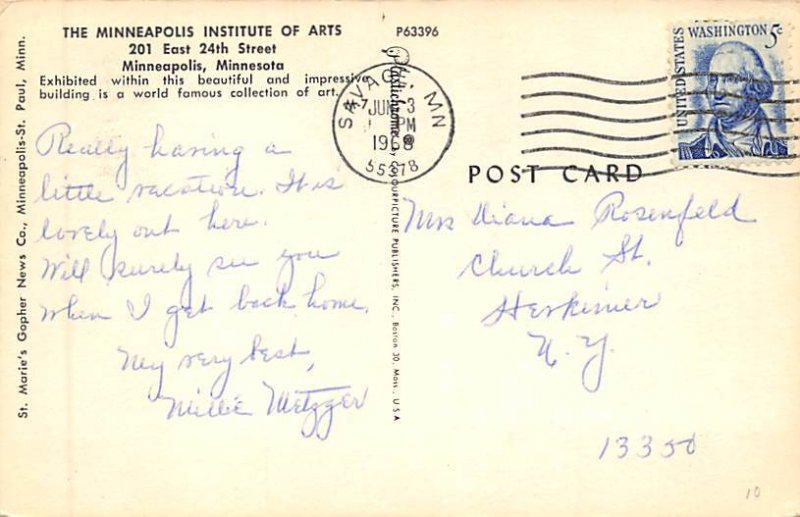 THE MINNEAPOLIS INSTITUTE OF ARTS
201 East 24th Street
Minneapolis, Minnesota
Exhibited within this beautiful and impressive
building is a world famous collection of art.
P63396
St. Marie's Gopher News Co., Minneapolis-St. Paul, Minn.
Plastichrome
COLOURPICTURE PUBLISHERS, INC., Boston 30, Mass., U.S.A.
SAVAGE, MN
JUN 3
PM
1968
55378
UNITED STATES
WASHINGTON 5c
POST CARD
Really having a
little vacation. It is
lovely out here.
Will surely see you
when I get back home.
My very best,
Millie Metzger
Mrs Diana Rosenfeld
Church St.
Herkimer
N.Y.
13350
10